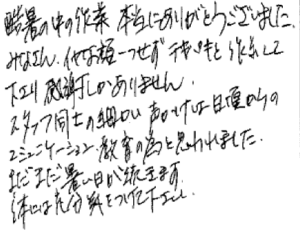 酷暑の中の作業 本当にありがとうございました。
みなさん、イヤな顔一つせず テキパキと作業して
下さり 感謝しかありません。
スタッフ同士の細かい声かけは日頃からの
コミュニケーション、教育の為と思われました。
まだまだ暑い日が続きます。
体には充分気をつけて下さい。